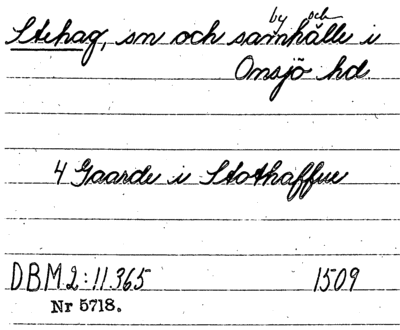 by och
Stehag, sn och samhälle i
Onsjö hd.
4 Gaarde i Stothaffue
DBM 2:II.365 1509
Nr 5718.